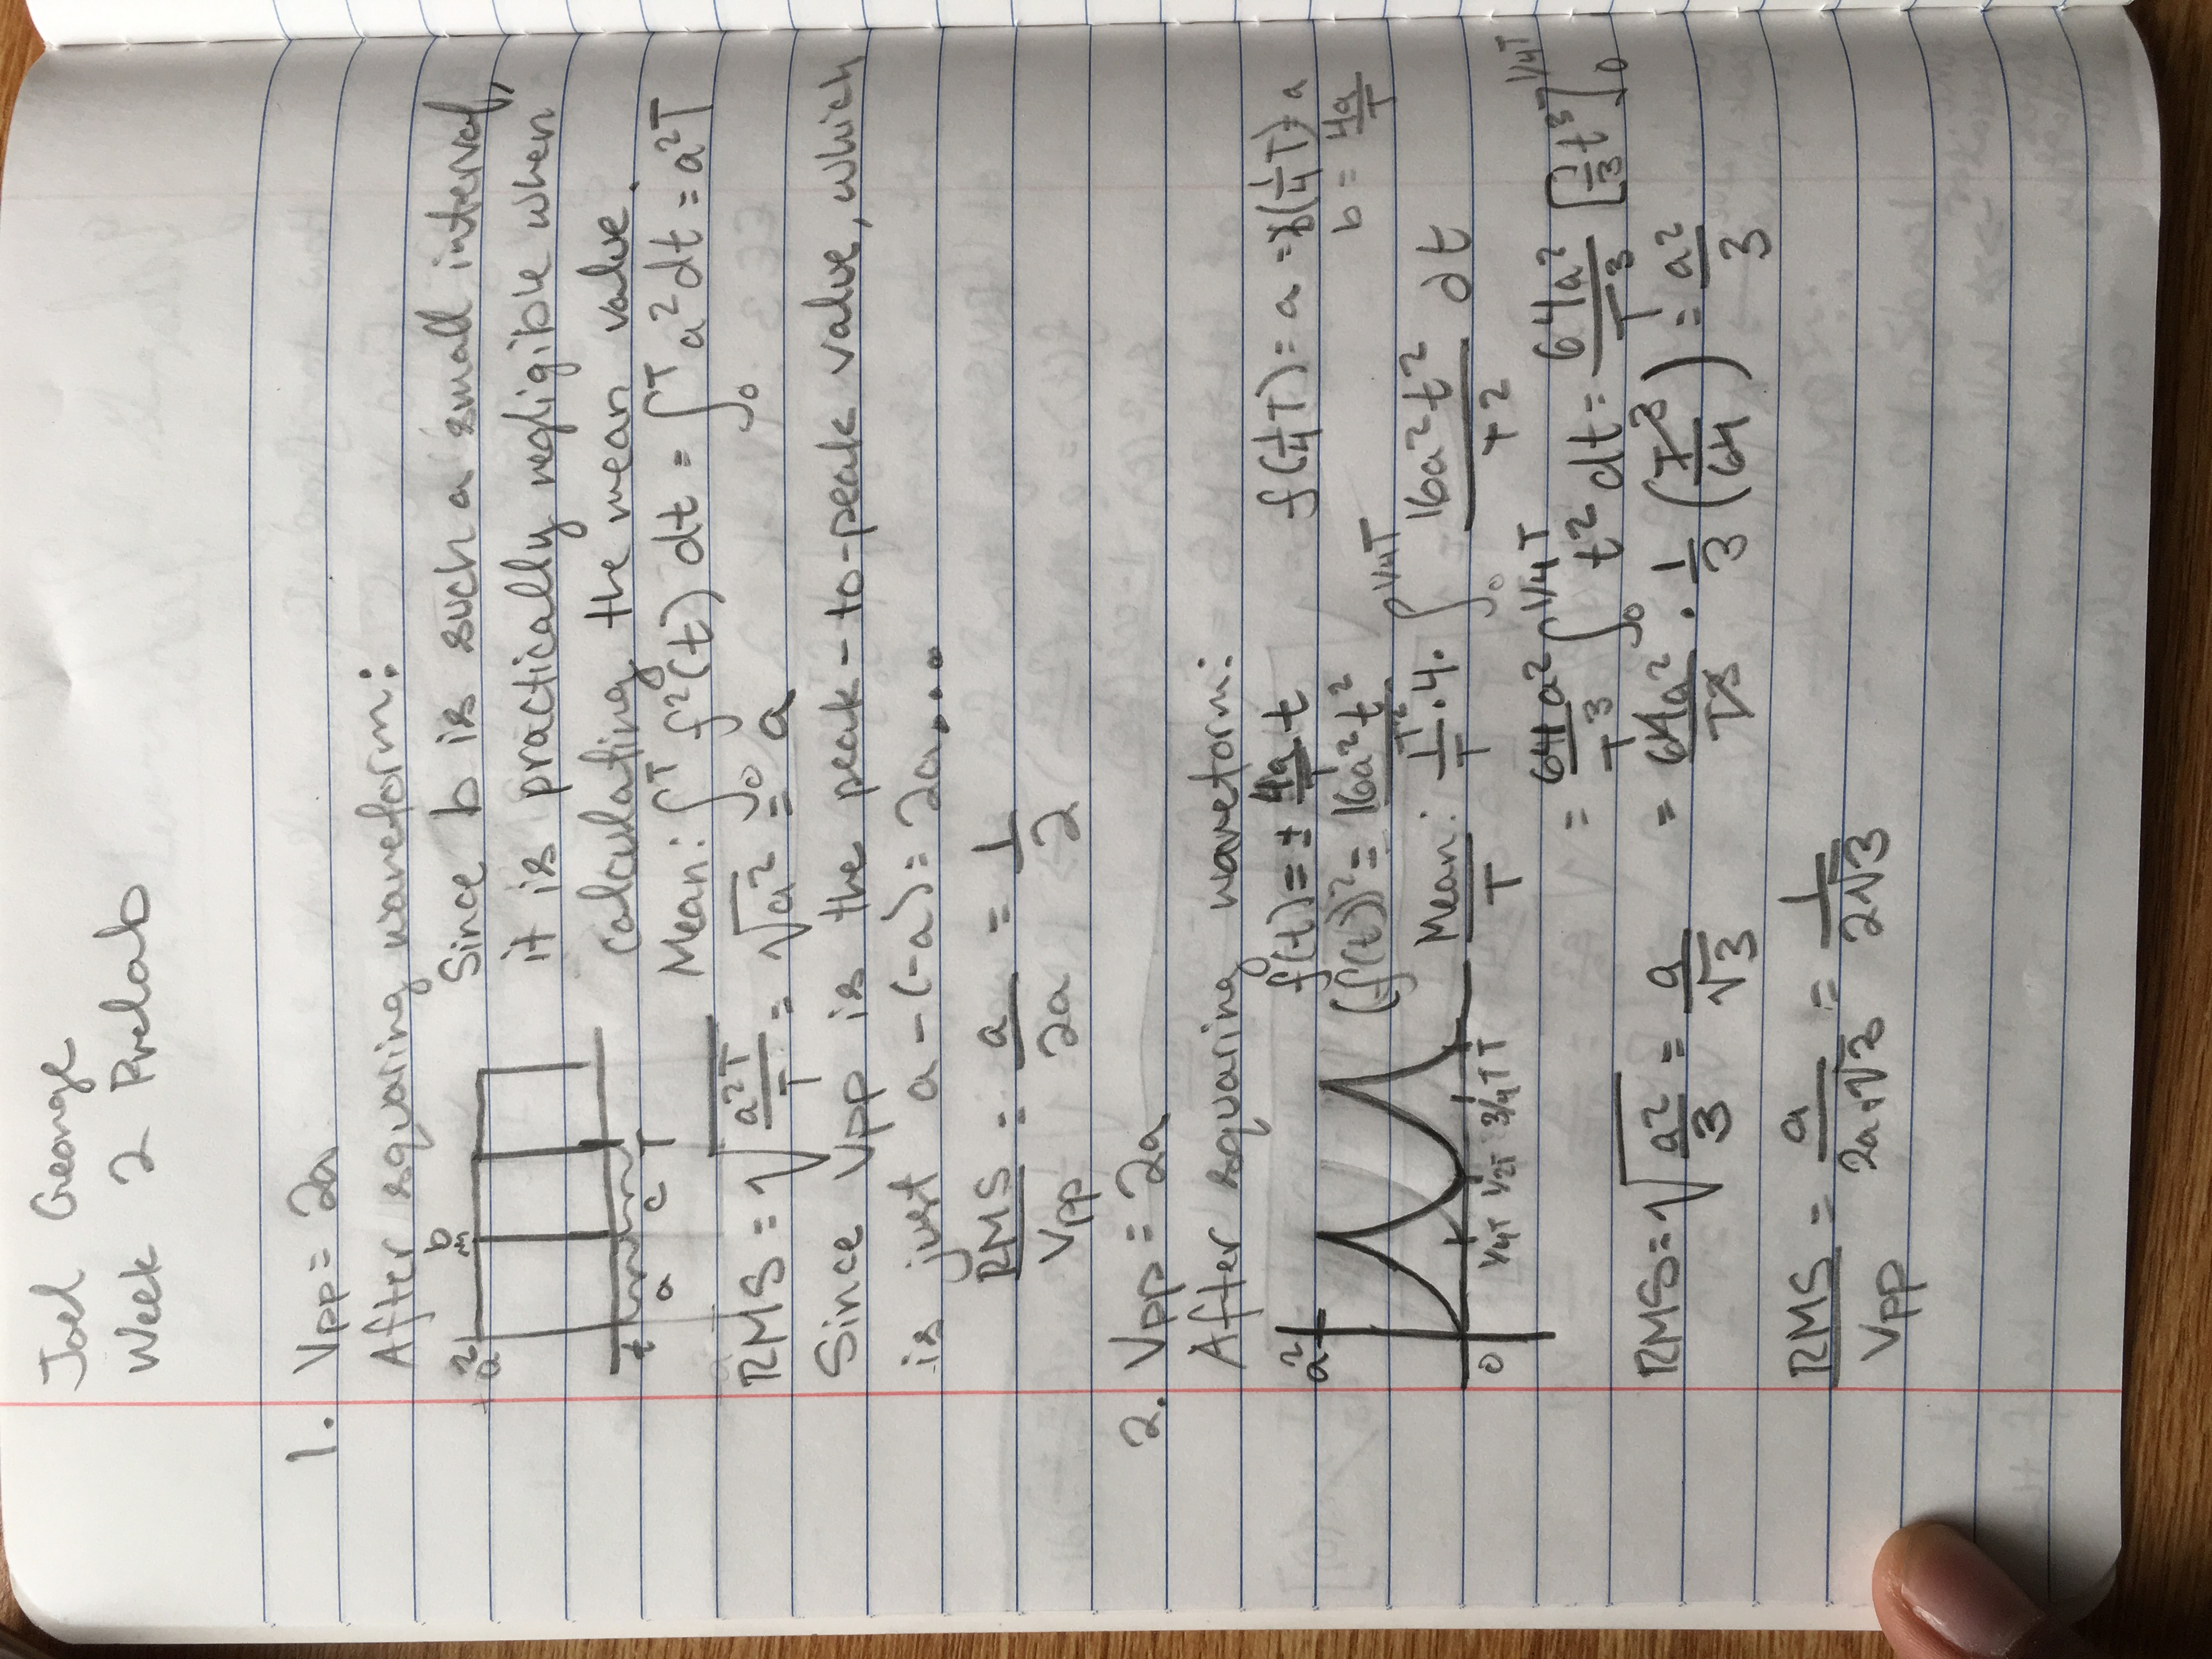 Joel George
Week 2 Prelab
1. Vpp = 2a
After squaring waveform:
b
a²
a c T
Since b is such a small interval,
it is practically negligible when
calculating the mean value.
Mean: ∫₀ᵀ f²(t) dt = ∫₀ᵀ a² dt = a²T
RMS = √(a²T/T) = √a² = a
Since Vpp is the peak-to-peak value, which
is just a - (-a) = 2a...
RMS/Vpp = a/2a = 1/2
2. Vpp = 2a
After squaring waveform:
a²
0 1/4T 1/2T 3/4T T
f(t) = ± 4a/T t
f(1/4T) = a = b(1/4T) = a
b = 4a/T
(f(t))² = 16a²t²/T²
Mean/T : 1/T · 4 · ∫₀^(1/4T) 16a²t²/T² dt
= 64a²/T³ ∫₀^(1/4T) t² dt = 64a²/T³ [1/3 t³]₀^(1/4T)
RMS = √(a²/3) = a/√3
= 64a²/T³ · 1/3 (T³/64) = a²/3
RMS/Vpp = a/(2a·√3) = 1/(2√3)